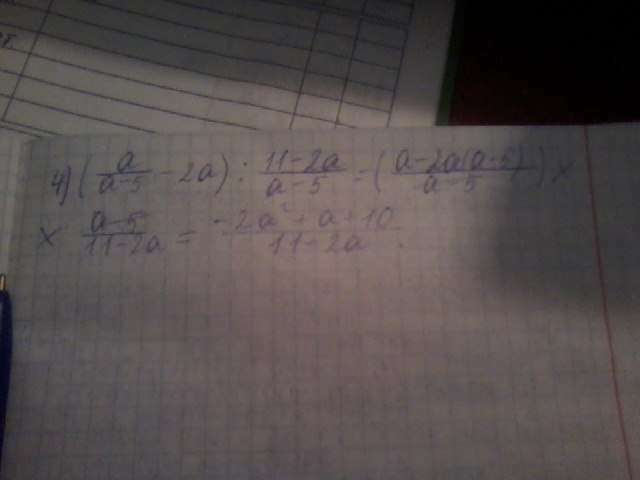 4) (a/(a-5) - 2a) : (11-2a)/(a-5) = ((a-2a(a-5))/(a-5)) ×
× (a-5)/(11-2a) = (-2a²+a+10)/(11-2a).